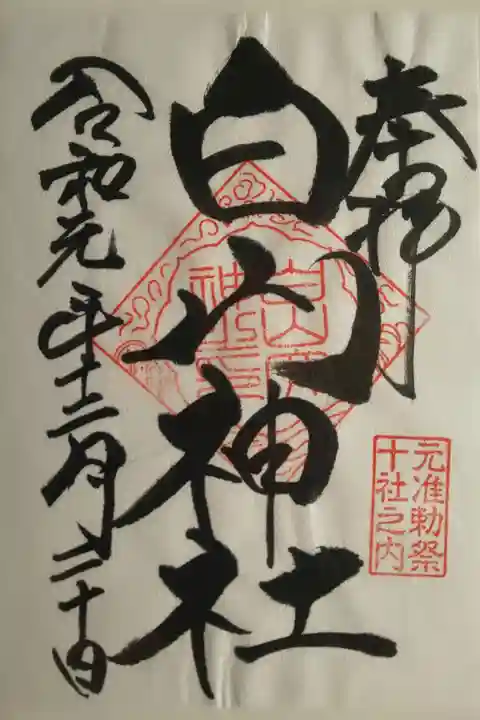 奉拝
元准勅祭
十社之内
白山神社
令和元年十二月二十日